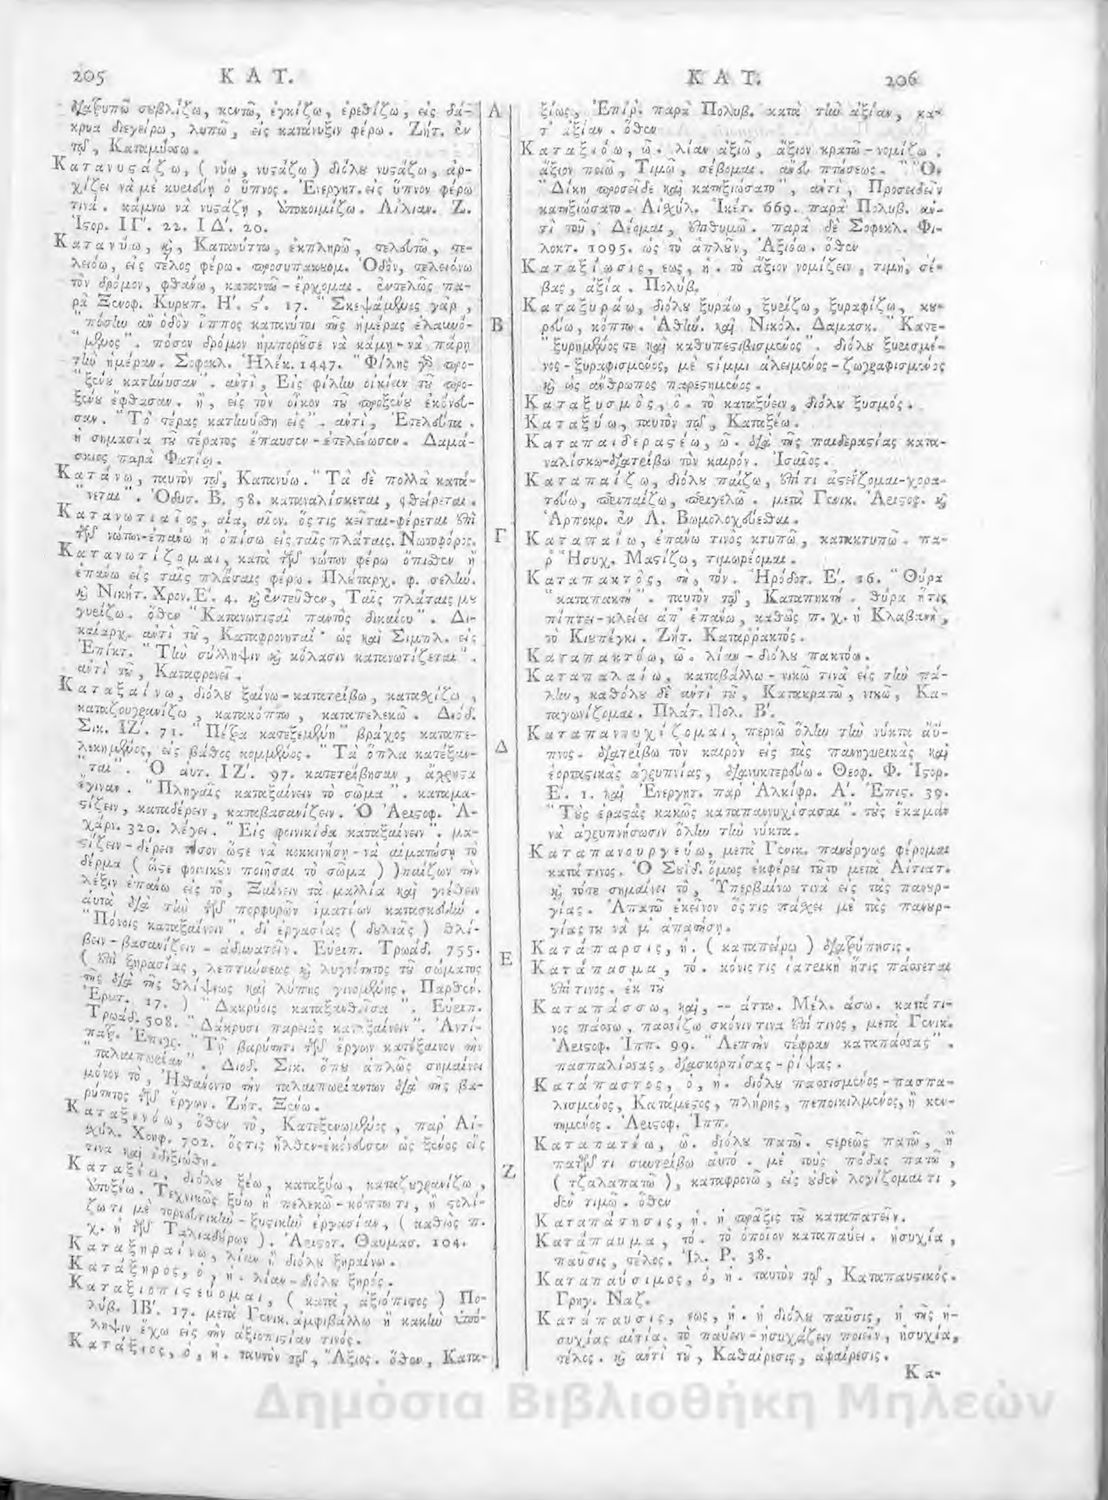 205 ΚΑΤ.
διατρυπῶ σουβλίζω, κεντῶ, ἐγκίζω, ἐρεθίζω, εἰς δά-
κρυα διεγείρω, λυπῶ, εἰς κατάνυξιν φέρω. Ζήτ. ἐν
τῷ, Καταμύσσω.
Κατανυστάζω, (νύω, νυστάζω) διόλου νυστάζω, ἀρ-
χίζει νὰ μὲ κυριεύῃ ὁ ὕπνος. Ἐνεργητ. εἰς ὕπνον φέρω
τινά. κάμνω νὰ νυστάζῃ, ὑποκοιμίζω. Αἰλιαν. Ζ.
Ἱστορ. ΙΓ'. 22. ΙΔ'. 20.
Κατανύω, καὶ, Κατανύττω, ἐκπληρῶ, τελευτῶ, τε-
λειόω, εἰς τέλος φέρω. προσυπακουομ. Ὁδόν, τελειόνω
τὸν δρόμον, φθάνω, καταντῶ-ἔρχομαι. ἐντελῶς πα-
ρὰ Ξενοφ. Κυρκπ. Η'. ς'. 17. "Σκεψάμενος γὰρ,
"πόσην ἂν ὁδὸν ἵππος κατανύτοι τῆς ἡμέρας ἐλαυνό-
"μενος". πόσον δρόμον ἠμποροῦσε νὰ κάμῃ-νὰ πάρῃ
τὴν ἡμέραν. Σοφοκλ. Ἠλέκ. 1447. "Φίλης γὰρ προ-
"ξένου κατήνυσαν". ἀντὶ, Εἰς φίλην οἰκίαν τοῦ προ-
ξένου ἔφθασαν. ἢ, εἰς τὸν οἶκον τοῦ προξένου ἐκόνευ-
σαν. "Τὸ τέρας κατηνύσθη εἰς". ἀντὶ, Ἐτελεύτα.
ἡ σημασία τοῦ τέρατος ἔπαυσεν-ἐτελείωσεν. Δαμά-
σκιος παρὰ Φωτίῳ.
Κατάνω, ταυτὸν τῷ, Κατανύω. "Τὰ δὲ πολλὰ κατά-
"νεται". Ὀδυσ. Β. 58. καταναλίσκεται, φθείρεται.
Κατανωτιαῖος, αία, αῖον. ὅςτις κεῖται-φέρεται ἐπὶ
τῶν νώτων-ἐπάνω ἢ ὀπίσω εἰς ταῖς πλάταις. Νωτοφόρος.
Κατανωτίζομαι, κατὰ τῶν νώτων φέρω ὄπισθεν ἢ
ἐπάνω εἰς ταῖς πλάταις φέρω. Πλέταρχ. φ. σελίν.
καὶ Νικήτ. Χρον. Ε'. 4. καὶ ἐντεῦθεν, Ταῖς πλάταις μου
γυρίζω. ὅθεν "Κατανωτίσαι παντὸς δικαίου". Δι-
καίαρχ. ἀντὶ τοῦ, Καταφρονῆσαι. ὡς καὶ Σιμπλ. εἰς
Ἐπίκτ. "Τὴν σύλληψιν καὶ κόλασιν κατανωτίζεται".
ἀντὶ τοῦ, Καταφρονεῖ.
Καταξαίνω, διόλου ξαίνω-κατατρίβω, κατασχίζω,
καταζουγρανίζω, κατακόπτω, καταπελεκῶ. Διόδ.
Σικ. ΙΖ'. 71. "Πέτρα κατεξεμμένη" βράχος καταπε-
λεκημμένος, εἰς βάθος κομμένος. "Τὰ ὅπλα κατέξαν-
"ται". Ὁ αὐτ. ΙΖ'. 97. κατετρίβησαν, ἄχρηστα
ἔγιναν. "Πληγαῖς καταξαίνειν τὸ σῶμα". καταμα-
στίζειν, καταδέρειν, καταβασανίζειν. Ὁ Ἀριστοφ. Ἀ-
χάρν. 320. λέγει. "Εἰς φοινικίδα καταξαίνειν". μα-
στίζειν-δέρειν τόσον ὥστε νὰ κοκκινήσῃ-νὰ αἱματώσῃ τὸ
δέρμα (ὥστε φοινικοῦν ποιῆσαι τὸ σῶμα) παίζων τὴν
λέξιν ἐπάνω εἰς τὸ, Ξαίνειν τὰ μαλλία καὶ γνέθειν
αὐτὰ διὰ τὴν τῶν πορφυρῶν ἱματίων κατασκευήν.
"Πόνοις καταξαίνειν". δι' ἐργασίας (δουλιᾶς) θλί-
βειν-βασανίζειν-ἀδυνατεῖν. Εὐριπ. Τρωάδ. 755.
(ἐπὶ ξηρασίας, λεπτυώσεως καὶ λυγνότητος τοῦ σώματος
τῆς διὰ τῆς θλίψεως καὶ λύπης γινομένης. Παρθεν.
Ἐρωτ. 17.) "Δακρύοις καταξανθεῖσα". Εὐριπ.
Τρωάδ. 508. "Δάκρυσι παρειὰς καταξαίνειν". Ἀντί-
πατ. Ἐπιγρ. "Τῇ βαρύτητι τῶν ἔργων κατέξαινον τὴν
"ταλαιπωρίαν". Διοδ. Σικ. ὅπου ἁπλῶς σημαίνει
μόνον τὸ, Ἠσθάνοντο τὴν ταλαιπωρίαν των διὰ τῆς βα-
ρύτητος τῶν ἔργων. Ζήτ. Ξαίνω.
Καταξενόω, ὅθεν τὸ, Κατεξενωμένος, παρ' Αἰ-
σχύλ. Χοηφ. 702. ὅςτις ἦλθεν-ἐκόνευσεν ὡς ξένος εἰς
τινὰ καὶ ἐδεξιώθη.
Καταξέω, διόλου ξέω, καταξύω, καταζουγρανίζω,
ὑποξέω. Τεχνικῶς ξύω ἢ πελεκῶ-κόπτω τι, ἢ στολί-
ζω τι μὲ τορνευτικὴν-ξυστικὴν ἐργασίαν, (καθὼς π.
χ. ἡ τῶν Ταλιαδούρων). Ἀριστοτ. Θαυμασ. 104.
Καταξηραίνω, λίαν ἢ διόλου ξηραίνω.
Κατάξηρος, ὁ, ἡ. λίαν-διόλου ξηρός.
Καταξιοπιστεύομαι, (κατὰ, ἀξιόπιστος) Πο-
λύβ. ΙΒ'. 17. μετὰ Γενικ. ἀμφιβάλλω ἢ κακὴν ὑπό-
ληψιν ἔχω εἰς τὴν ἀξιοπιστίαν τινός.
Κατάξιος, ὁ, ἡ. ταυτὸν τῷ, Ἄξιος. ὅθεν, Κατα-
Α
Β
Γ
Δ
Ε
Ζ
ΚΑΤ. 206
ξίως, Ἐπίρ. παρὰ Πολυβ. κατὰ τὴν ἀξίαν, κα-
τ' ἀξίαν. ὅθεν
Καταξιόω, ῶ. λίαν ἀξιῶ, ἄξιον κρατῶ-νομίζω.
ἄξιον ποιῶ, Τιμῶ, σέβομαι. ἄνευ πτώσεως. "Ὃν
"Δίκη προσεῖδε καὶ κατηξιώσατο", ἀντὶ, Προσειδεῖν
κατηξιώσατο. Αἰσχύλ. Ἱκέτ. 669. παρὰ Πολυβ. ἀν-
τὶ τοῦ, Δέομαι, ἐπιθυμῶ. παρὰ δὲ Σοφοκλ. Φι-
λοκτ. 1095. ὡς τὸ ἁπλοῦν, Ἀξιόω. ὅθεν
Καταξίωσις, εως, ἡ. τὸ ἄξιον νομίζειν, τιμή, σέ-
βας, ἀξία. Πολύβ.
Καταξυράω, διόλου ξυράω, ξυρίζω, ξυραφίζω, κου-
ρεύω, κόπτω. Ἀθήν. καὶ Νικόλ. Δαμασκ. "Κατε-
"ξυρημένος τε καὶ καθυπεστιβισμένος". διόλου ξυρισμέ-
νος-ξυραφισμένος, μὲ στίμμι ἀλειμένος-ζωγραφισμένος
καὶ ὡς ἄνθρωπος παρεστημένος.
Καταξυσμός, ὁ. τὸ καταξύειν, διόλου ξυσμός.
Καταξύω, ταυτὸν τῷ, Καταξέω.
Καταπαιδεραστέω, ῶ. διὰ τῆς παιδεραστίας κατα-
ναλίσκω-διατρίβω τὸν καιρόν. Ἰσαῖος.
Καταπαίζω, διόλου παίζω, ἐπί τι ἀστεΐζομαι-χορα-
τεύω, περιπαίζω, περιγελῶ. μετὰ Γενικ. Ἀριστοφ. καὶ
Ἁρποκρ. ἐν Λ. Βωμολοχεύεσθαι.
Καταπαίω, ἐπάνω τινὸς κτυπῶ, κατακτυπῶ. πα-
ρ' Ἡσυχ. Μαστίζω, τιμωρέομαι.
Καταπακτὸς, τὴ, τόν. Ἡρόδοτ. Ε'. 16. "Θύρα
"καταπακτὴ". ταυτὸν τῷ, Καταπηκτή. θύρα ἥτις
πίπτει-κλείει ἀπ' ἐπάνω, καθὼς π.χ. ἡ Κλαβανὴ,
τὸ Κιεπέγκι. Ζήτ. Καταῤῥακτός.
Καταπακτόω, ῶ. λίαν-διόλου πακτόω.
Καταπαλαίω, καταβάλλω-νικῶ τινὰ εἰς τὴν πά-
λην, καθόλου δὲ ἀντὶ τοῦ, Κατακρατῶ, νικῶ, Κα-
ταγωνίζομαι. Πλάτ. Πολ. Β'.
Καταπαννυχίζομαι, περνῶ ὅλην τὴν νύκτα ἄϋ-
πνος. διατρίβω τὸν καιρὸν εἰς τὰς πανηγυρικὰς καὶ
ἑορταστικὰς ἀγρυπνίας, διανυκτερεύω. Θεοφ. Φ. Ἱστορ.
Ε'. 1. καὶ Ἐνεργητ. παρ' Ἀλκίφρ. Α'. Ἐπιστ. 39.
"Τοὺς ἐραστὰς κακῶς καταπαννυχίσασαι". τοὺς ἔκαμαν
νὰ ἀγρυπνήσωσιν ὅλην τὴν νύκτα.
Καταπανουργεύω, μετὰ Γενικ. πανούργως φέρομαι
κατά τινος. Ὁ Σουΐδ. ὅμως ἐκφέρει τοῦτο μετὰ Αἰτιατ.
καὶ τότε σημαίνει τὸ, Ὑπερβαίνω τινὰ εἰς τὰς πανουρ-
γίας. Ἀπατῶ ἐκεῖνον ὅςτις πάσχει μὲ τὰς πανουρ-
γίας του νὰ μ' ἀπατήσῃ.
Κατάπαρσις, ἡ. (καταπείρω) διατρύπησις.
Κατάπασμα, τό. κόνις τις ἰατρικὴ ἥτις πάσσεται
ἐπί τινος. ἐκ τοῦ
Καταπάσσω, καὶ, -- άττω. Μέλ. άσω. κατά τι-
νος πάσσω, πασσίζω σκόνιν τινὰ ἐπί τινος, μετὰ Γενικ.
Ἀριστοφ. Ἱππ. 99. "Λεπτὴν τέφραν καταπάσας".
πασπαλίσας, διασκορπίσας-ῥίψας.
Κατάπαστος, ὁ, ἡ. διόλου πασσισμένος-πασπα-
λισμένος, Κατάμεστος, πλήρης, πεποικιλμένος, ἢ κεν-
τημένος. Ἀριστοφ. Ἱππ.
Καταπατέω, ῶ. διόλου πατῶ. στερεῶς πατῶ, ἢ
πατῶν τι συντρίβω αὐτό. μὲ τοὺς πόδας πατῶ,
(τζαλαπατῶ), καταφρονῶ, εἰς οὐδὲν λογίζομαί τι,
δὲν τιμῶ. ὅθεν
Καταπάτησις, ἡ. ἡ πρᾶξις τοῦ καταπατεῖν.
Κατάπαυμα, τό. τὸ ὁποῖον καταπαύει. ἡσυχία,
παῦσις, τέλος. Ἰλ. Ρ. 38.
Καταπαύσιμος, ὁ, ἡ. ταυτὸν τῷ, Καταπαυστικός.
Γρηγ. Ναζ.
Κατάπαυσις, εως, ἡ. ἡ διόλου παῦσις, ἡ τῆς ἡ-
συχίας αἰτία. τὸ παύειν-ἡσυχάζειν ποιεῖν, ἡσυχία,
τέλος. καὶ ἀντὶ τοῦ, Καθαίρεσις, ἀφαίρεσις.
Κα-
Δημόσια Βιβλιοθήκη Μηλεών